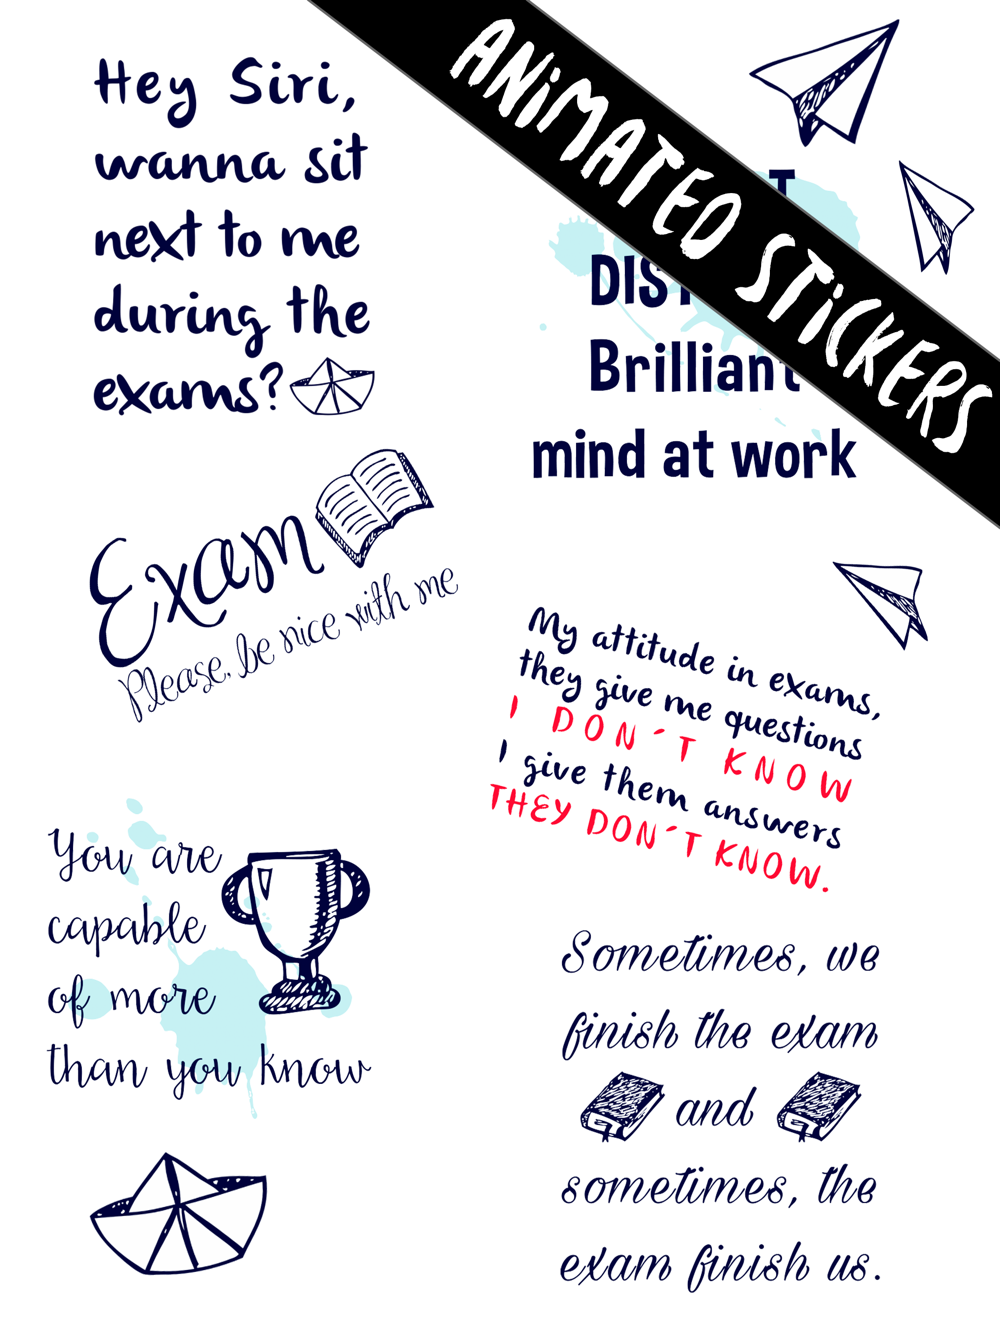 Hey Siri,
wanna sit
next to me
during the
exams?
ANiMATED STiCKERS
T
DIST
Brilliant
mind at work
Exam
Please, be nice with me
My attitude in exams,
they give me questions
I DON´T KNOW
I give them answers
THEY DON´T KNOW.
You are
capable
of more
than you know
Sometimes, we
finish the exam
and
sometimes, the
exam finish us.